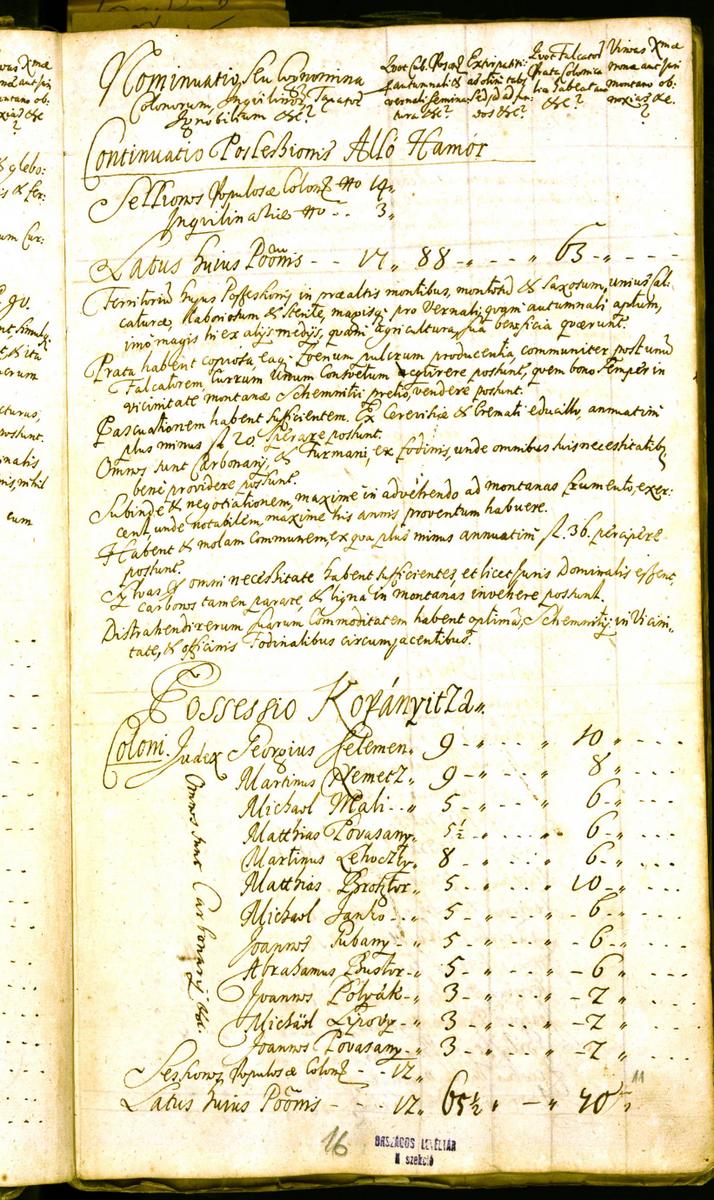 Nominuatio, Seu Cognomina
Colonorum, Inquilinorũ, Taxator̃
Ignobilium &c?
Quot Cub. Poson̄
autumnali &
vernali semina
tura &c?
Extirpatiti
ad
&c?
Quot Falcator̃
Prata Colonica
lia habeat an
&c?
Vineas
montano ob:
noxias &c.
?
Continuatio Possessionis Alsó Hamór
Sessiones Populosæ Colon̄ No 14„
Inquilinariæ No - - 3„
Latus huius Poõnis - - 17„ 88„ - „ - - „ 63„ - - -
Territoriũ hujus Possessionis in præaltis montibus, montosũ & saxosum, unius cal:
caturæ, laboriosum & sterile, magisq; pro Vernali, quam autumnali aptum,
imo magis hi ex alijs medijs, quam agricultura, sua beneficia quærunt.
Prata habent copiosa, eaq; foenum pulcrum producentia, communiter post unũ
Falcatorem, Currum Unum Convectum acquirere possunt, quem bono semper in
vicinitate montanæ Schemnitij pretio, vendere possunt.
Pascuationem habent sufficientem. Ex Cerevisiæ & Cremati educillo, annuatim
plus minus fl 20 sperare possunt.
Omnes sunt Carbonarij, & Furmani, ex fodinis, unde omnibus suis necessitatibq
bene providere possunt.
Subinde & negotiationem, maxime in advehendo ad montanas frumento, exer:
cent, unde notabilem, maxime his annis proventum habuere.
Habent & molam Communem, ex qua plus minus annuatim fl. 36. percipere
possunt.
Sylvas omni necessitate habent sufficientes, et licet Juris Dominalis essent,
carbones tamen parare, & ligna in montanas invehere possunt.
Distrahendi rerum suarum Commoditatem habent optimã, Schemnitij in Vicini„
tate, & officinis Fodinalibus circumjacentibus.
Possessio Kopányitza„
Coloni. Judex Georgius Kelemen„ 9 - „ - - „ 10 - „ - - -
Martinus Nemecz„ 9 - „ - - „ 8 - „ - - -
Michael Mali - - „ 5 - „ - - - „ 6 - „ - - -
Matthias Povasany„ 5½ - „ - - - „ 6 - „ - - -
Martinus Lehoczky„ 8 - „ - - - „ 6 - „ - - -
Matthias „ 5 - „ - - - „ 10 - „ - - -
Michael Janko - - „ 5 - „ - - - „ - 6 - „ - - -
Joannes Rubany - „ 5 - „ - - - „ - 6 - „ - - -
Abrahamus „ 5 - „ - - - „ - 6 - „ - - -
Joannes Polyák - „ 3 - „ - - - „ - 2 - „ - - -
Michael Lipovy - „ 3 - „ - - - „ - 2 - „ - - -
Joannes Povasany„ 3 - „ - - - „ - 2 - „ - - -
Omnes sunt Carbonarij &c.
Sessiones Populosæ Colon̄ - - 12„
Latus huius Poõnis - - - 12„ 65½„ - „ 70„
11
16
ORSZÁGOS LEVÉLTÁR
N szekció